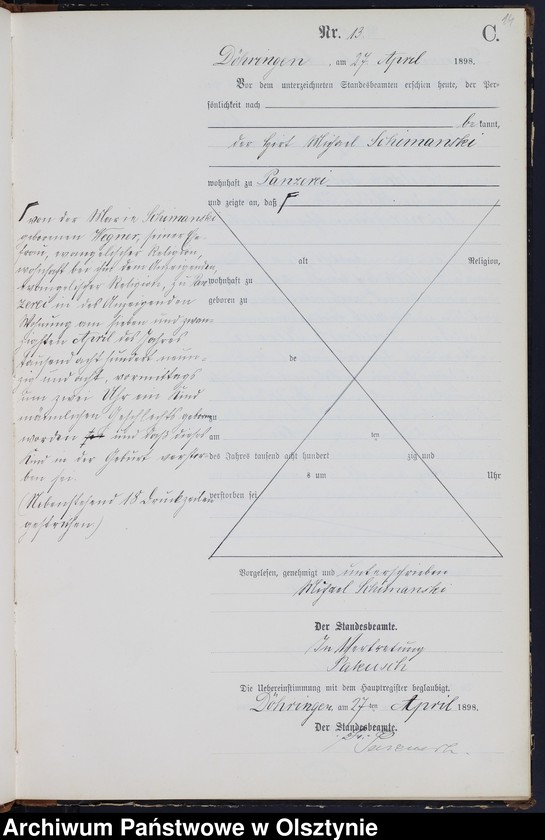 Nr. 13
C.
Döhringen, am 27 April 1898.
Vor dem unterzeichneten Standesbeamten erschien heute, der Per-
sönlichkeit nach
be kannt,
der Hirt Michael Schimanski
wohnhaft zu Panzerei
und zeigte an, daß
von der Marie Schimanski
geborenen Wegner, seiner Ehe-
frau, evangelischer Religion,
wohnhaft bei ihm dem Anzeigenden,
evangelischer Religion, zu Pan-
zerei in des Anzeigenden
Wohnung am sieben und zwan-
zigsten April des Jahres
tausend acht hundert neun-
zig und acht, vormittags
um zwei Uhr ein Kind
männlichen Geschlechts geboren
worden und daß dieses
Kind in der Geburt verstor-
ben sei.
(Nebenstehend 18 Druckzeilen
gestrichen)
alt Religion,
wohnhaft zu
geboren zu
de
zu
am ten
des Jahres tausend acht hundert zig und
s um Uhr
verstorben sei
Vorgelesen, genehmigt und unterschrieben
Michael Schimanski
Der Standesbeamte.
In Vertretung
Die Uebereinstimmung mit dem Hauptregister beglaubigt.
Döhringen, am 27 ten April 1898.
Der Standesbeamte.
Archiwum Państwowe w Olsztynie